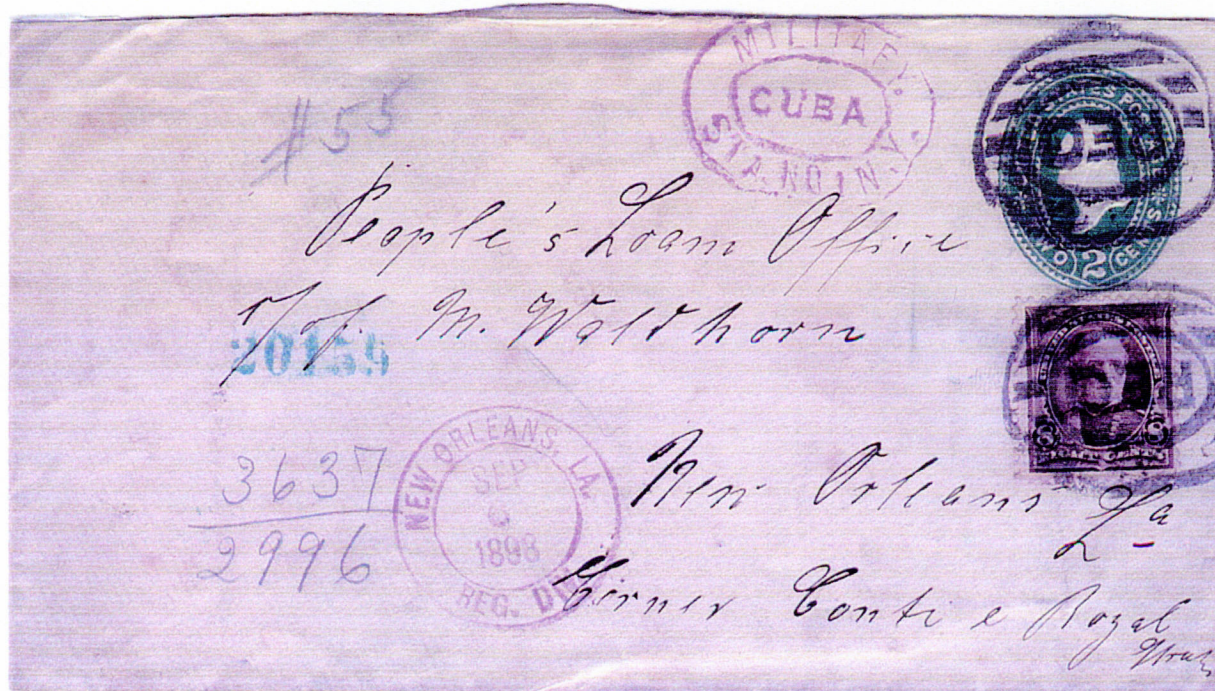 #55
MILITARY
CUBA
STATION
No 1
REG
2
CENTS
People's Loan Office
c/of. M. Waldhorn
20159
3637
2996
NEW ORLEANS, LA.
SEP
1898
REG. DIV.
New Orleans La
Corner Conti e Royal